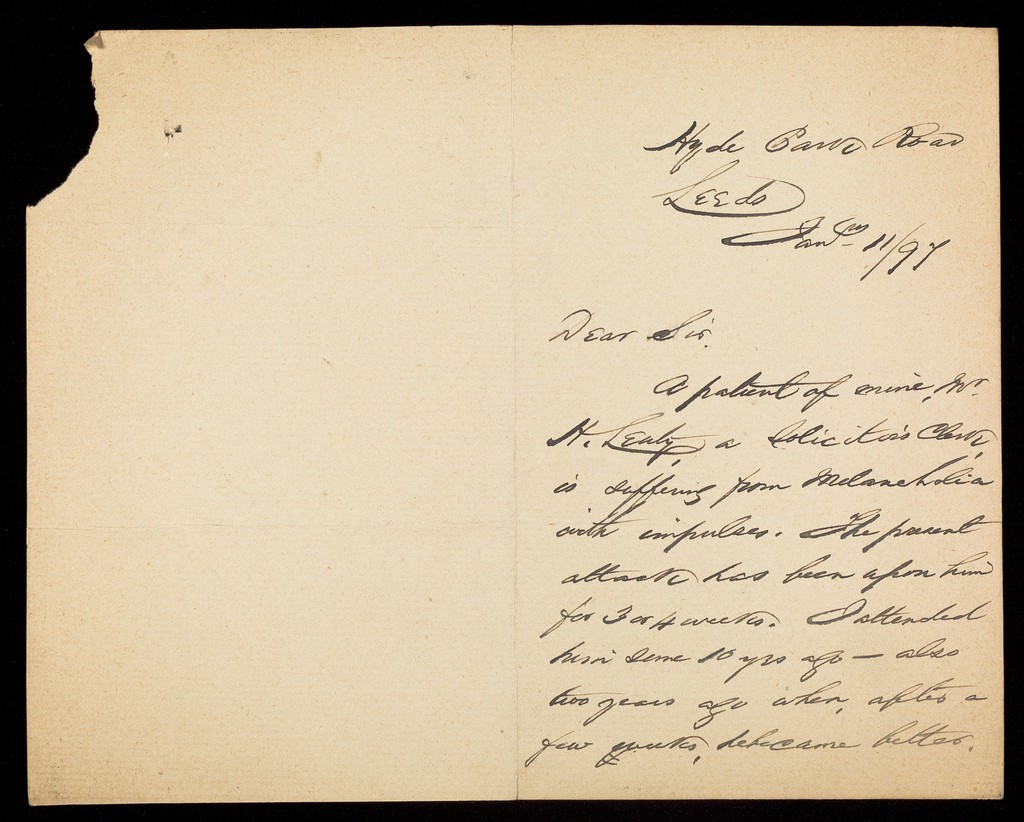 Hyde Park Road
Leeds
Jany 11/97
Dear Sir.
A patient of mine, Mr.
H. Lealy, a Solicitor's Clerk,
is suffering from Melancholia
with impulses. The present
attack has been upon him
for 3 or 4 weeks. I attended
him some 10 yrs ago — also
two years ago when, after a
few weeks, he became better.